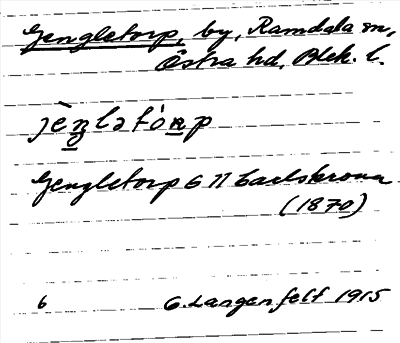 Gengletorp, by, Ramdala sn,
Östra hd, Blek. l.
jèŋlətórp
Gengletorp G 11 Carlskrona
(1870)
6 G. Langenfelt 1915